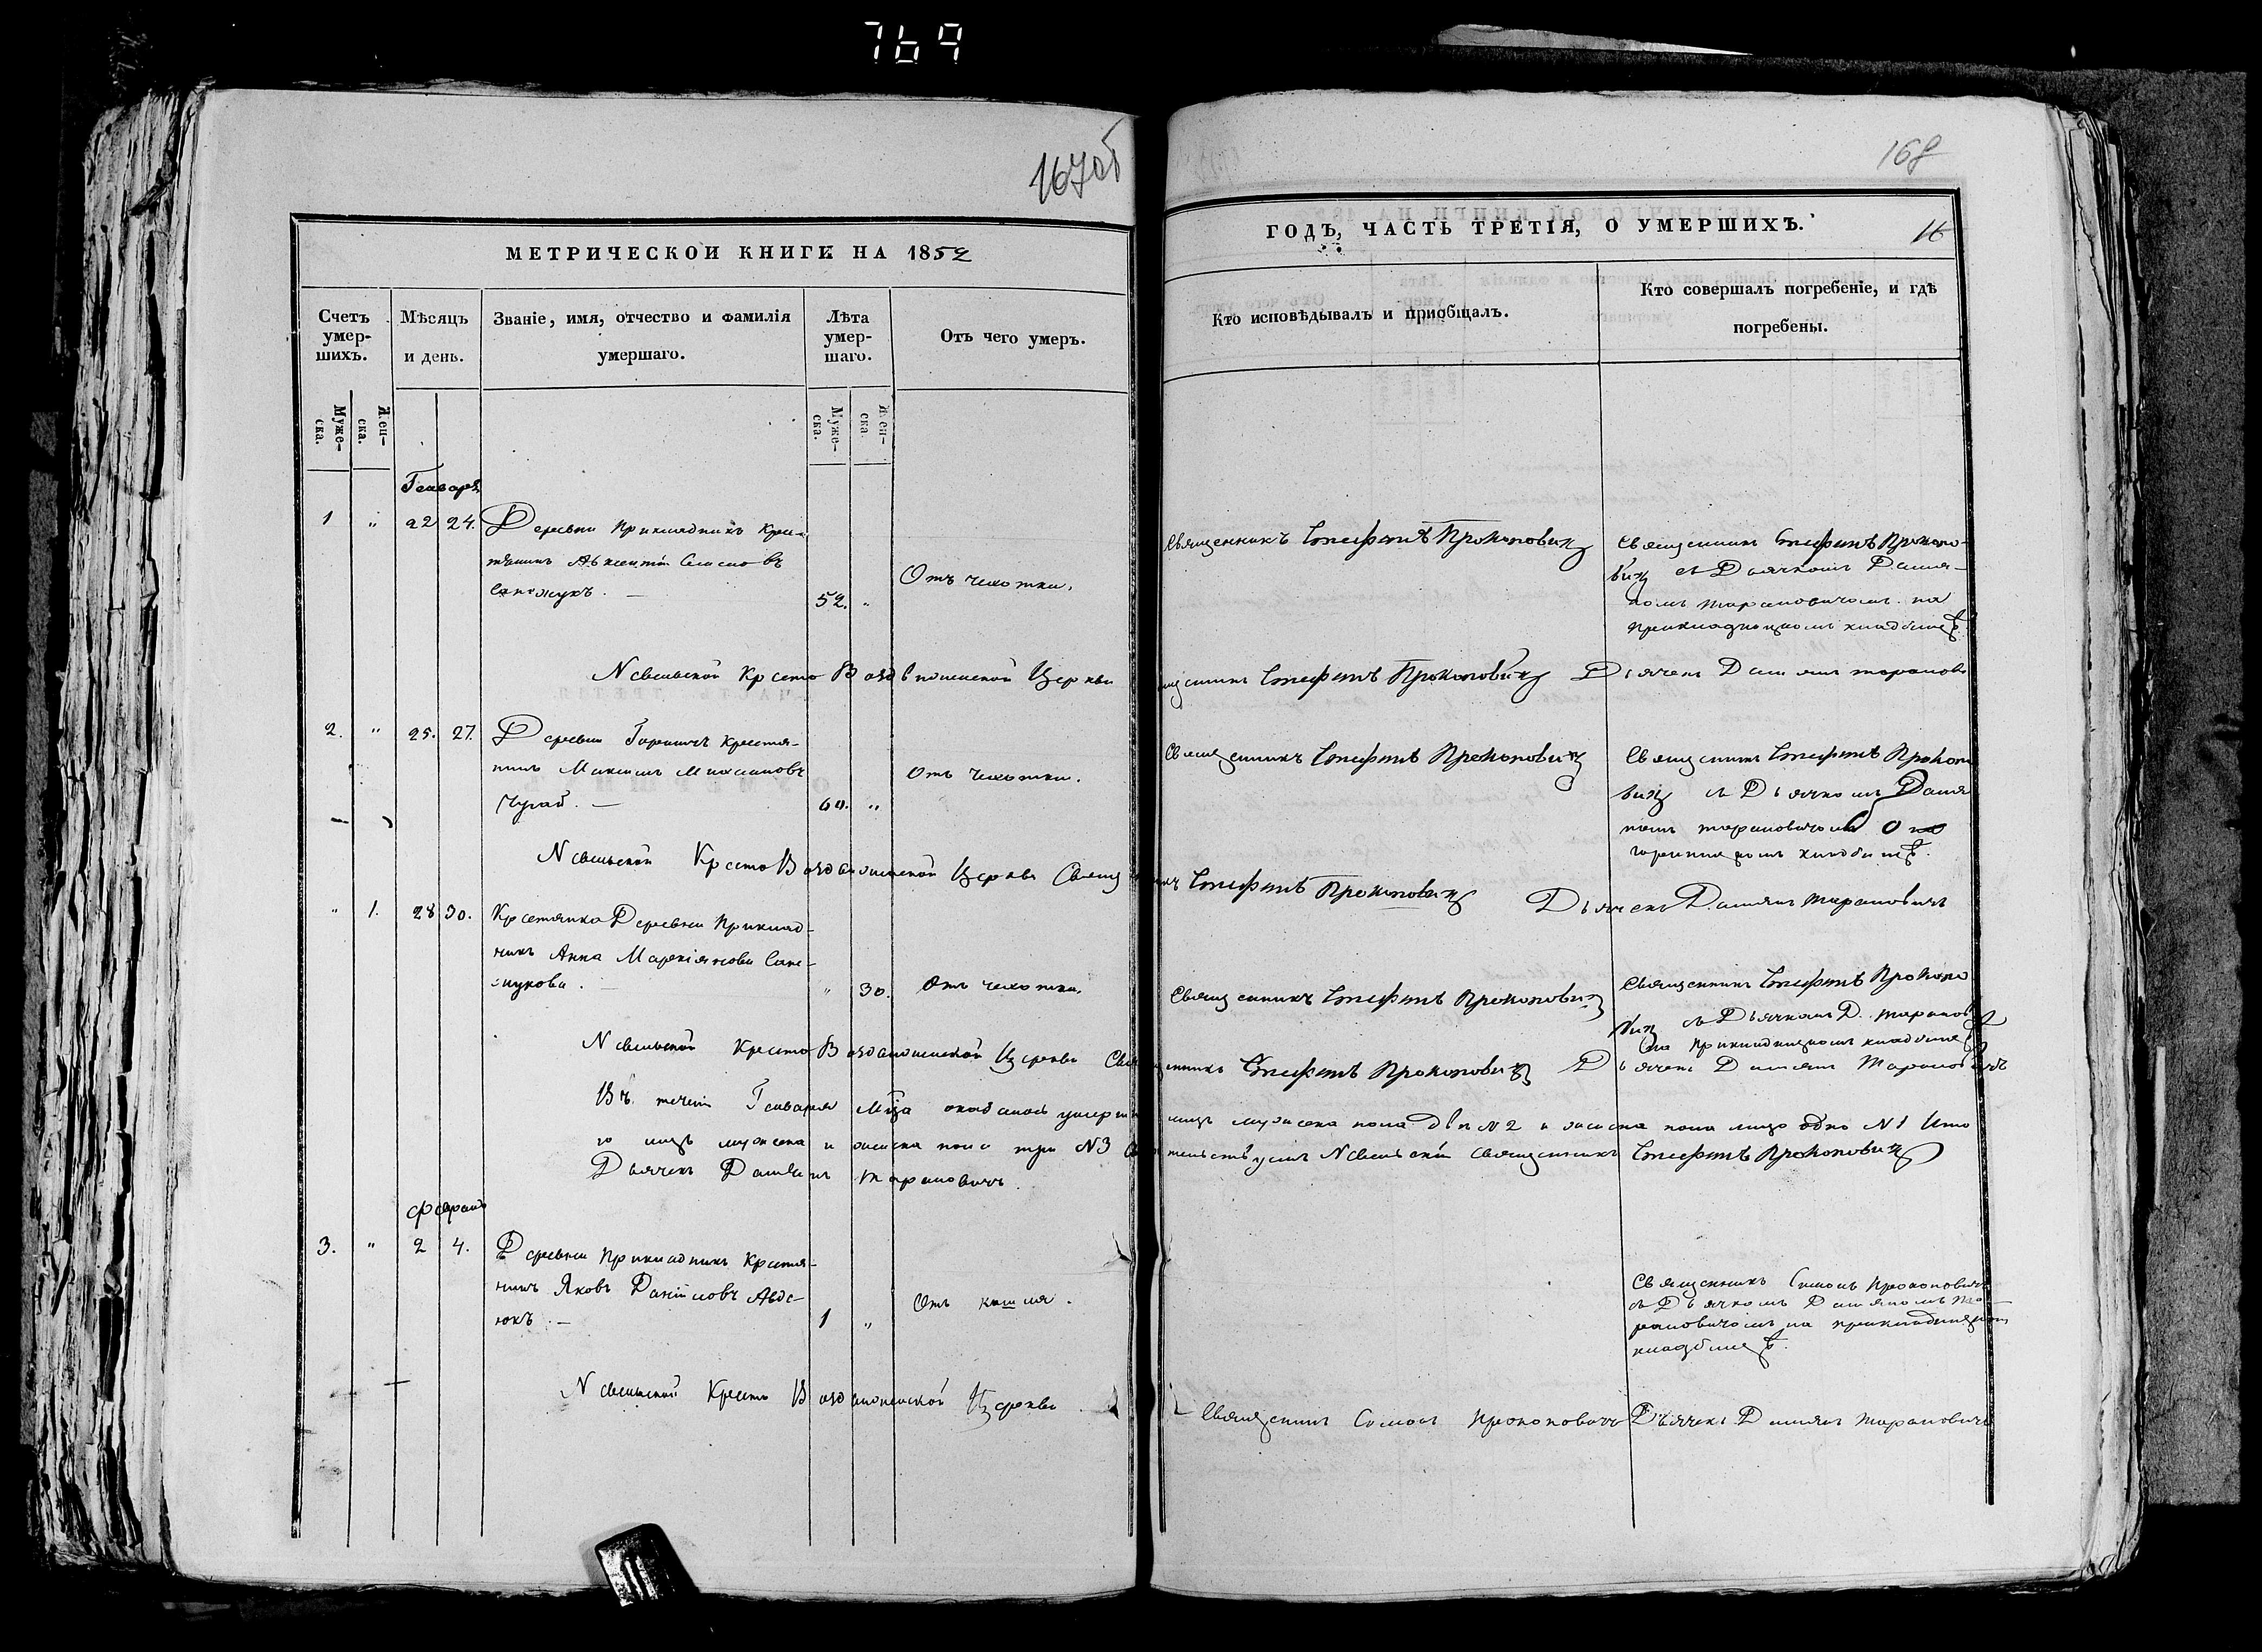 769
167об
168
МЕТРИЧЕСКОЙ КНИГИ НА 1852
ГОДЪ, ЧАСТЬ ТРЕТІЯ, О УМЕРШИХЪ.
16
Счетъ умер-шихъ.
Мѣсяцъ и день.
Званіе, имя, отчество и фамилія умершаго.
Лѣта умер-шаго.
Отъ чего умеръ.
Кто исповѣдывалъ и пріобщалъ.
Кто совершалъ погребеніе, и гдѣ погребены.
Муже-ска.
Жен-ска.
Муже-ска.
Жен-ска.
Генваря
1 " 22 24. Деревни Прикладникъ Крес-
тянинъ Авксентій
52. "
Отъ чехотки.
Священникъ Стефанъ Прокоповичъ
Священникъ Стефанъ Прокопо-
вичъ съ Дьячкомъ Дамія-
номъ Тарановичомъ на
Прикладницкомъ кладбищѣ.
Невельской Кресто Воздвиженской Церкви
Стефанъ Прокоповичъ Дьячекъ Даміянъ Таранови
2. " 25. 27. Деревни Горничъ Крестя-
нинъ Максимъ
60. "
Отъ чехотки.
Священникъ Стефанъ Прокоповичъ
Священникъ Стефанъ Прокопо
вичъ съ Дьячкомъ Дамія
номъ Тарановичомъ на
кладбищѣ.
Невельской Кресто Воздвиженской Церкви Священникъ Стефанъ Прокоповичъ Дьячекъ Даміянъ Тарановичъ
" 1. 28 30. Крестянка Деревни Приклад-
никъ Анна
" 30.
Отъ чехотки.
Священникъ Стефанъ Прокоповичъ
Священникъ Стефанъ Прокопо
вичъ съ Дьячкомъ Д. Таранов
на Прикладницкомъ кладбищѣ
Невельской Кресто Воздвиженской Церкви Священникъ Стефанъ Прокоповичъ Дьячекъ Даміянъ Тарановичъ
Въ теченіи Генваря М҃ца оказалось умерш лицъ мужеска пола два N 2 и женска пола лицо одно N 1 Ито
го лицъ мужеска и женска пола три N3 Невельскій Священникъ Стефанъ Прокоповичъ
Дьячекъ Даміянъ Тарановичъ.
Февраль
3. " 2 4. Деревни Прикладникъ Крестя-
нинъ Яковъ Даніиловъ Авде-
юкъ. —
1 "
Отъ кашля.
Священникъ Симонъ Прокоповичъ
съ Дьячкомъ Даміяномъ Та-
рановичомъ на Прикладницком
кладбищѣ.
Невельской Кресто Воздвиженской Церкви Священникъ Симонъ Прокоповичъ Дьячекъ Даміянъ Тарановичъ